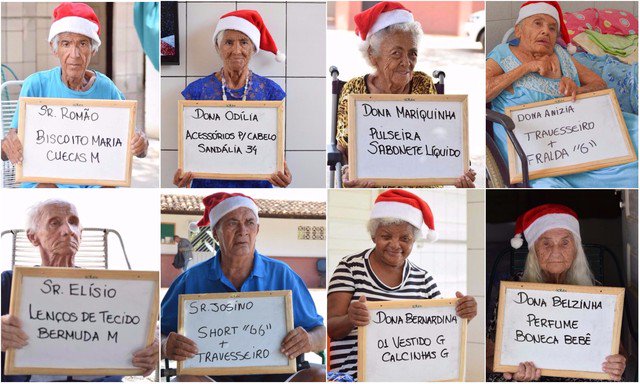 Sr. Romão
Biscoito Maria
Cuecas M
Dona Odília
Acessórios p/ cabelo
Sandália 34
Dona Mariquinha
Pulseira
Sabonete Líquido
Dona Anizia
Travesseiro
+
Fralda "G"
Sr. Elísio
Lenços de Tecido
Bermuda M
Sr. Josino
Short "GG"
+
Travesseiro
Dona Bernardina
01 Vestido G
Calcinhas G
Dona Belzinha
Perfume
Boneca Bebê